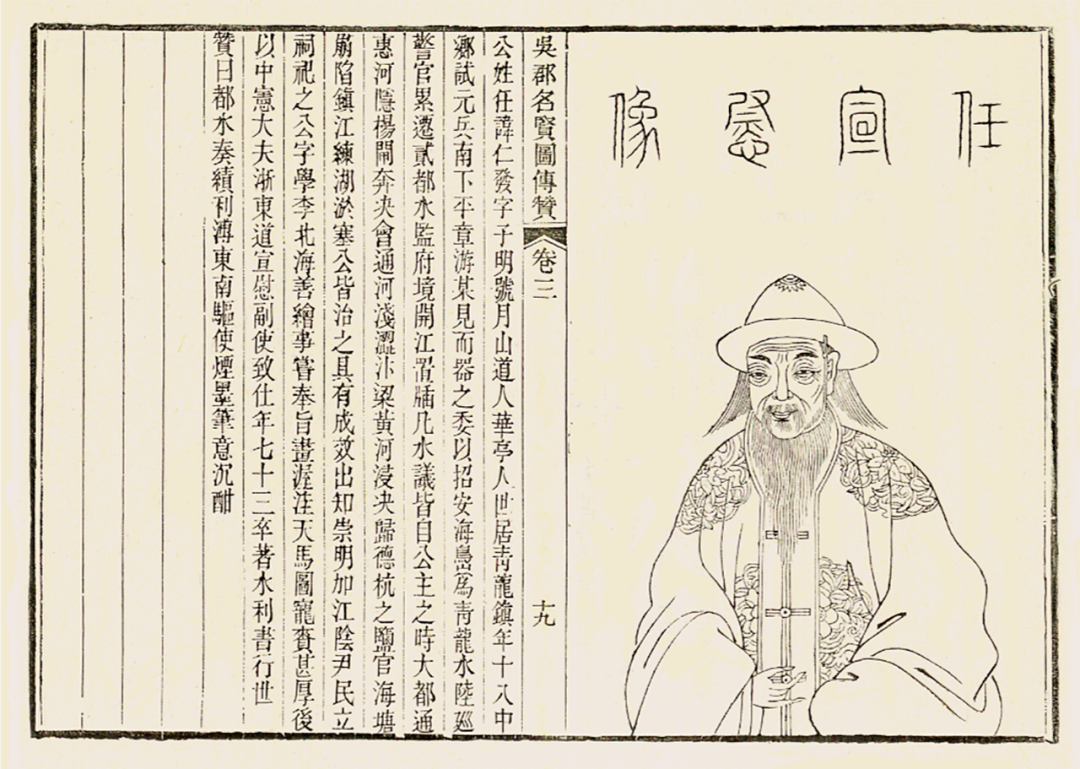 任宣慰像
吳郡名賢圖傳贊 卷三 十九
公姓任諱仁發字子明號月山道人華亭人世居靑龍鎮年十八中
鄉試元兵南下平章游某見而器之委以招安海島爲靑龍水陸巡
警官累遷貳都水監府境開江置牐凡水議皆自公主之時大都通
惠河隱楊閘奔决會通河淺澀汴梁黃河浸决歸德杭之鹽官海塘
崩陷鎮江練湖淤塞公皆治之具有成效出知崇明加江陰尹民立
祠祀之公字學李北海善繪事嘗奉旨畫渥洼天馬圖寵賚甚厚後
以中憲大夫浙東道宣慰副使致仕年七十三卒著水利書行世
贊曰都水奏績利溥東南驅使煙墨筆意沉酣